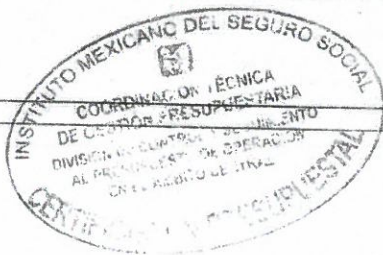 INSTITUTO MEXICANO DEL SEGURO SOCIAL
COORDINACIÓN TÉCNICA
DE GESTIÓN PRESUPUESTARIA
DIVISIÓN DE CONTROL Y SEGUIMIENTO
AL PRESUPUESTO DE OPERACIÓN
EN EL ÁMBITO CENTRAL
PRESUPUESTAL